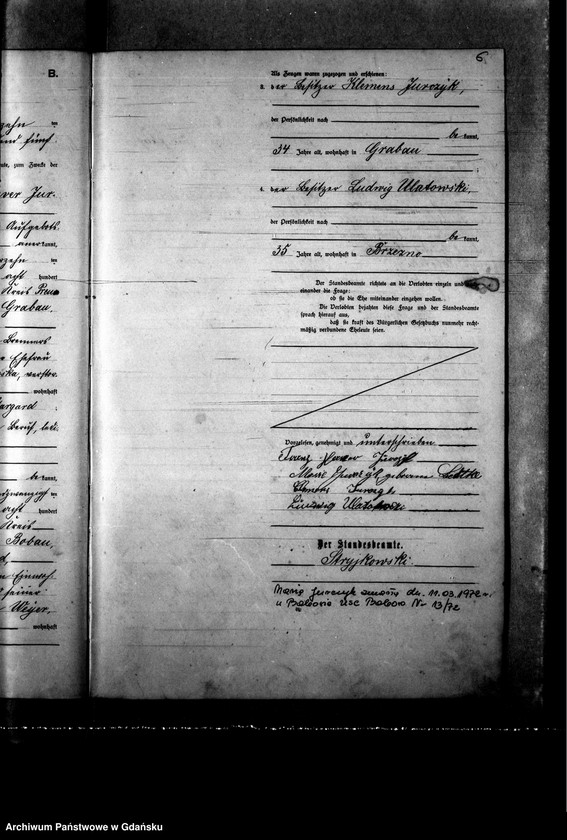 B.
zehn
und fünf
zum Zwecke der
ver Jur-
Aufgebots
anerkannt,
acht hundert
Kreis
Grabau.
Ehefrau
verstor
wohnhaft
Beruf,
be kannt,
acht hundert
Kreis
Bobau,
Weyer,
wohnhaft
6
Als Zeugen waren zugezogen und erschienen:
3. der Besitzer Klemens Jurczyk,
der Persönlichkeit nach
be kannt,
34 Jahre alt, wohnhaft in Grabau
;
4. der Besitzer Ludwig Ulatowski,
der Persönlichkeit nach
be kannt,
35 Jahre alt, wohnhaft in Brzezno
.
Der Standesbeamte richtete an die Verlobten einzeln und
einander die Frage:
ob sie die Ehe miteinander eingehen wollen.
Die Verlobten bejahten diese Frage und der Standesbeamte
sprach hierauf aus,
daß sie kraft des Bürgerlichen Gesetzbuchs nunmehr recht-
mäßig verbundene Eheleute seien.
Vorgelesen, genehmigt und unterschrieben
Franz Jurczyk
Marie Jurczyk geborene
Klemens Jurczyk
Ludwig Ulatowski
Der Standesbeamte.
Stryjkowski.
Maria Jurczyk zmarła dn. 11.03.1972 r.
w USC Nr 13/72
Archiwum Państwowe w Gdańsku